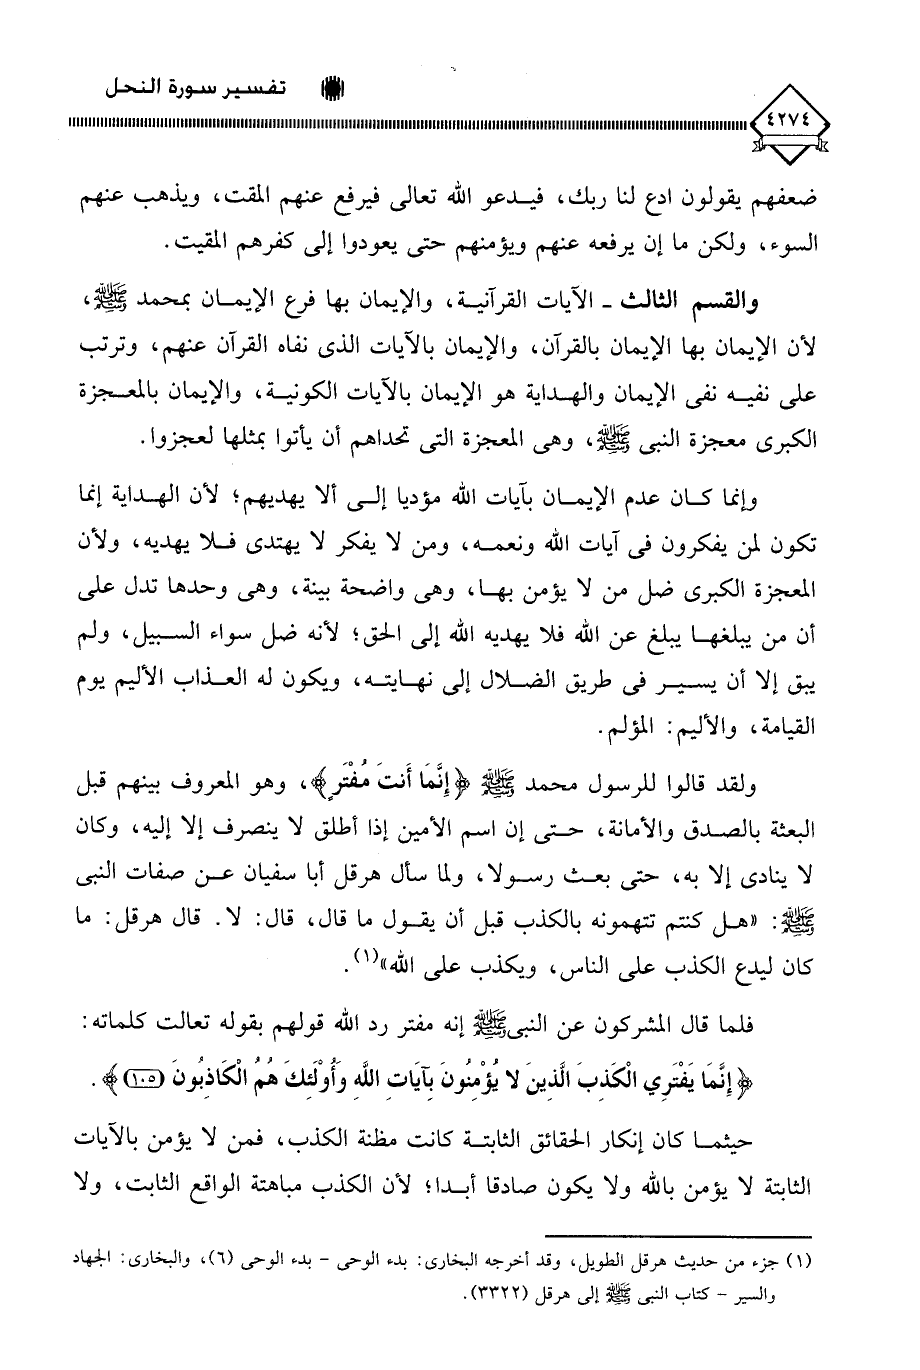 تفسير سورة النحل
٤٢٧٤
ضعفهم يقولون ادع لنا ربك، فيدعو الله تعالى فيرفع عنهم المقت، ويذهب عنهم
السوء، ولكن ما إن يرفعه عنهم ويؤمنهم حتى يعودوا إلى كفرهم المقيت.
والقسم الثالث ـ الآيات القرآنية، والإيمان بها فرع الإيمان بمحمد ﷺ،
لأن الإيمان بها الإيمان بالقرآن، والإيمان بالآيات الذى نفاه القرآن عنهم، وترتب
على نفيه نفى الإيمان والهداية هو الإيمان بالآيات الكونية، والإيمان بالمعجزة
الكبرى معجزة النبى ﷺ، وهى المعجزة التى تحداهم أن يأتوا بمثلها لعجزوا.
وإنما كان عدم الإيمان بآيات الله مؤديا إلى ألا يهديهم؛ لأن الهداية إنما
تكون لمن يفكرون فى آيات الله ونعمه، ومن لا يفكر لا يهتدى فلا يهديه، ولأن
المعجزة الكبرى ضل من لا يؤمن بها، وهى واضحة بينة، وهى وحدها تدل على
أن من يبلغها يبلغ عن الله فلا يهديه الله إلى الحق؛ لأنه ضل سواء السبيل، ولم
يبق إلا أن يسير فى طريق الضلال إلى نهايته، ويكون له العذاب الأليم يوم
القيامة، والأليم: المؤلم.
ولقد قالوا للرسول محمد ﷺ ﴿إِنَّمَا أَنتَ مُفْتَرٍ﴾، وهو المعروف بينهم قبل
البعثة بالصدق والأمانة، حتى إن اسم الأمين إذا أطلق لا ينصرف إلا إليه، وكان
لا ينادى إلا به، حتى بعث رسولا، ولما سأل هرقل أبا سفيان عن صفات النبى
ﷺ: «هل كنتم تتهمونه بالكذب قبل أن يقول ما قال، قال: لا. قال هرقل: ما
كان ليدع الكذب على الناس، ويكذب على الله»(١).
فلما قال المشركون عن النبى ﷺ إنه مفتر رد الله قولهم بقوله تعالت كلماته:
﴿إِنَّمَا يَفْتَرِي الْكَذِبَ الَّذِينَ لا يُؤْمِنُونَ بِآيَاتِ اللَّهِ وَأُوْلَئِكَ هُمُ الْكَاذِبُونَ (١٠٥)﴾.
حيثما كان إنكار الحقائق الثابتة كانت مظنة الكذب، فمن لا يؤمن بالآيات
الثابتة لا يؤمن بالله ولا يكون صادقا أبدا؛ لأن الكذب مباهتة الواقع الثابت، ولا
(١) جزء من حديث هرقل الطويل، وقد أخرجه البخارى: بدء الوحى - بدء الوحى (٦)، والبخارى: الجهاد
والسير - كتاب النبى ﷺ إلى هرقل (٣٣٢٢).